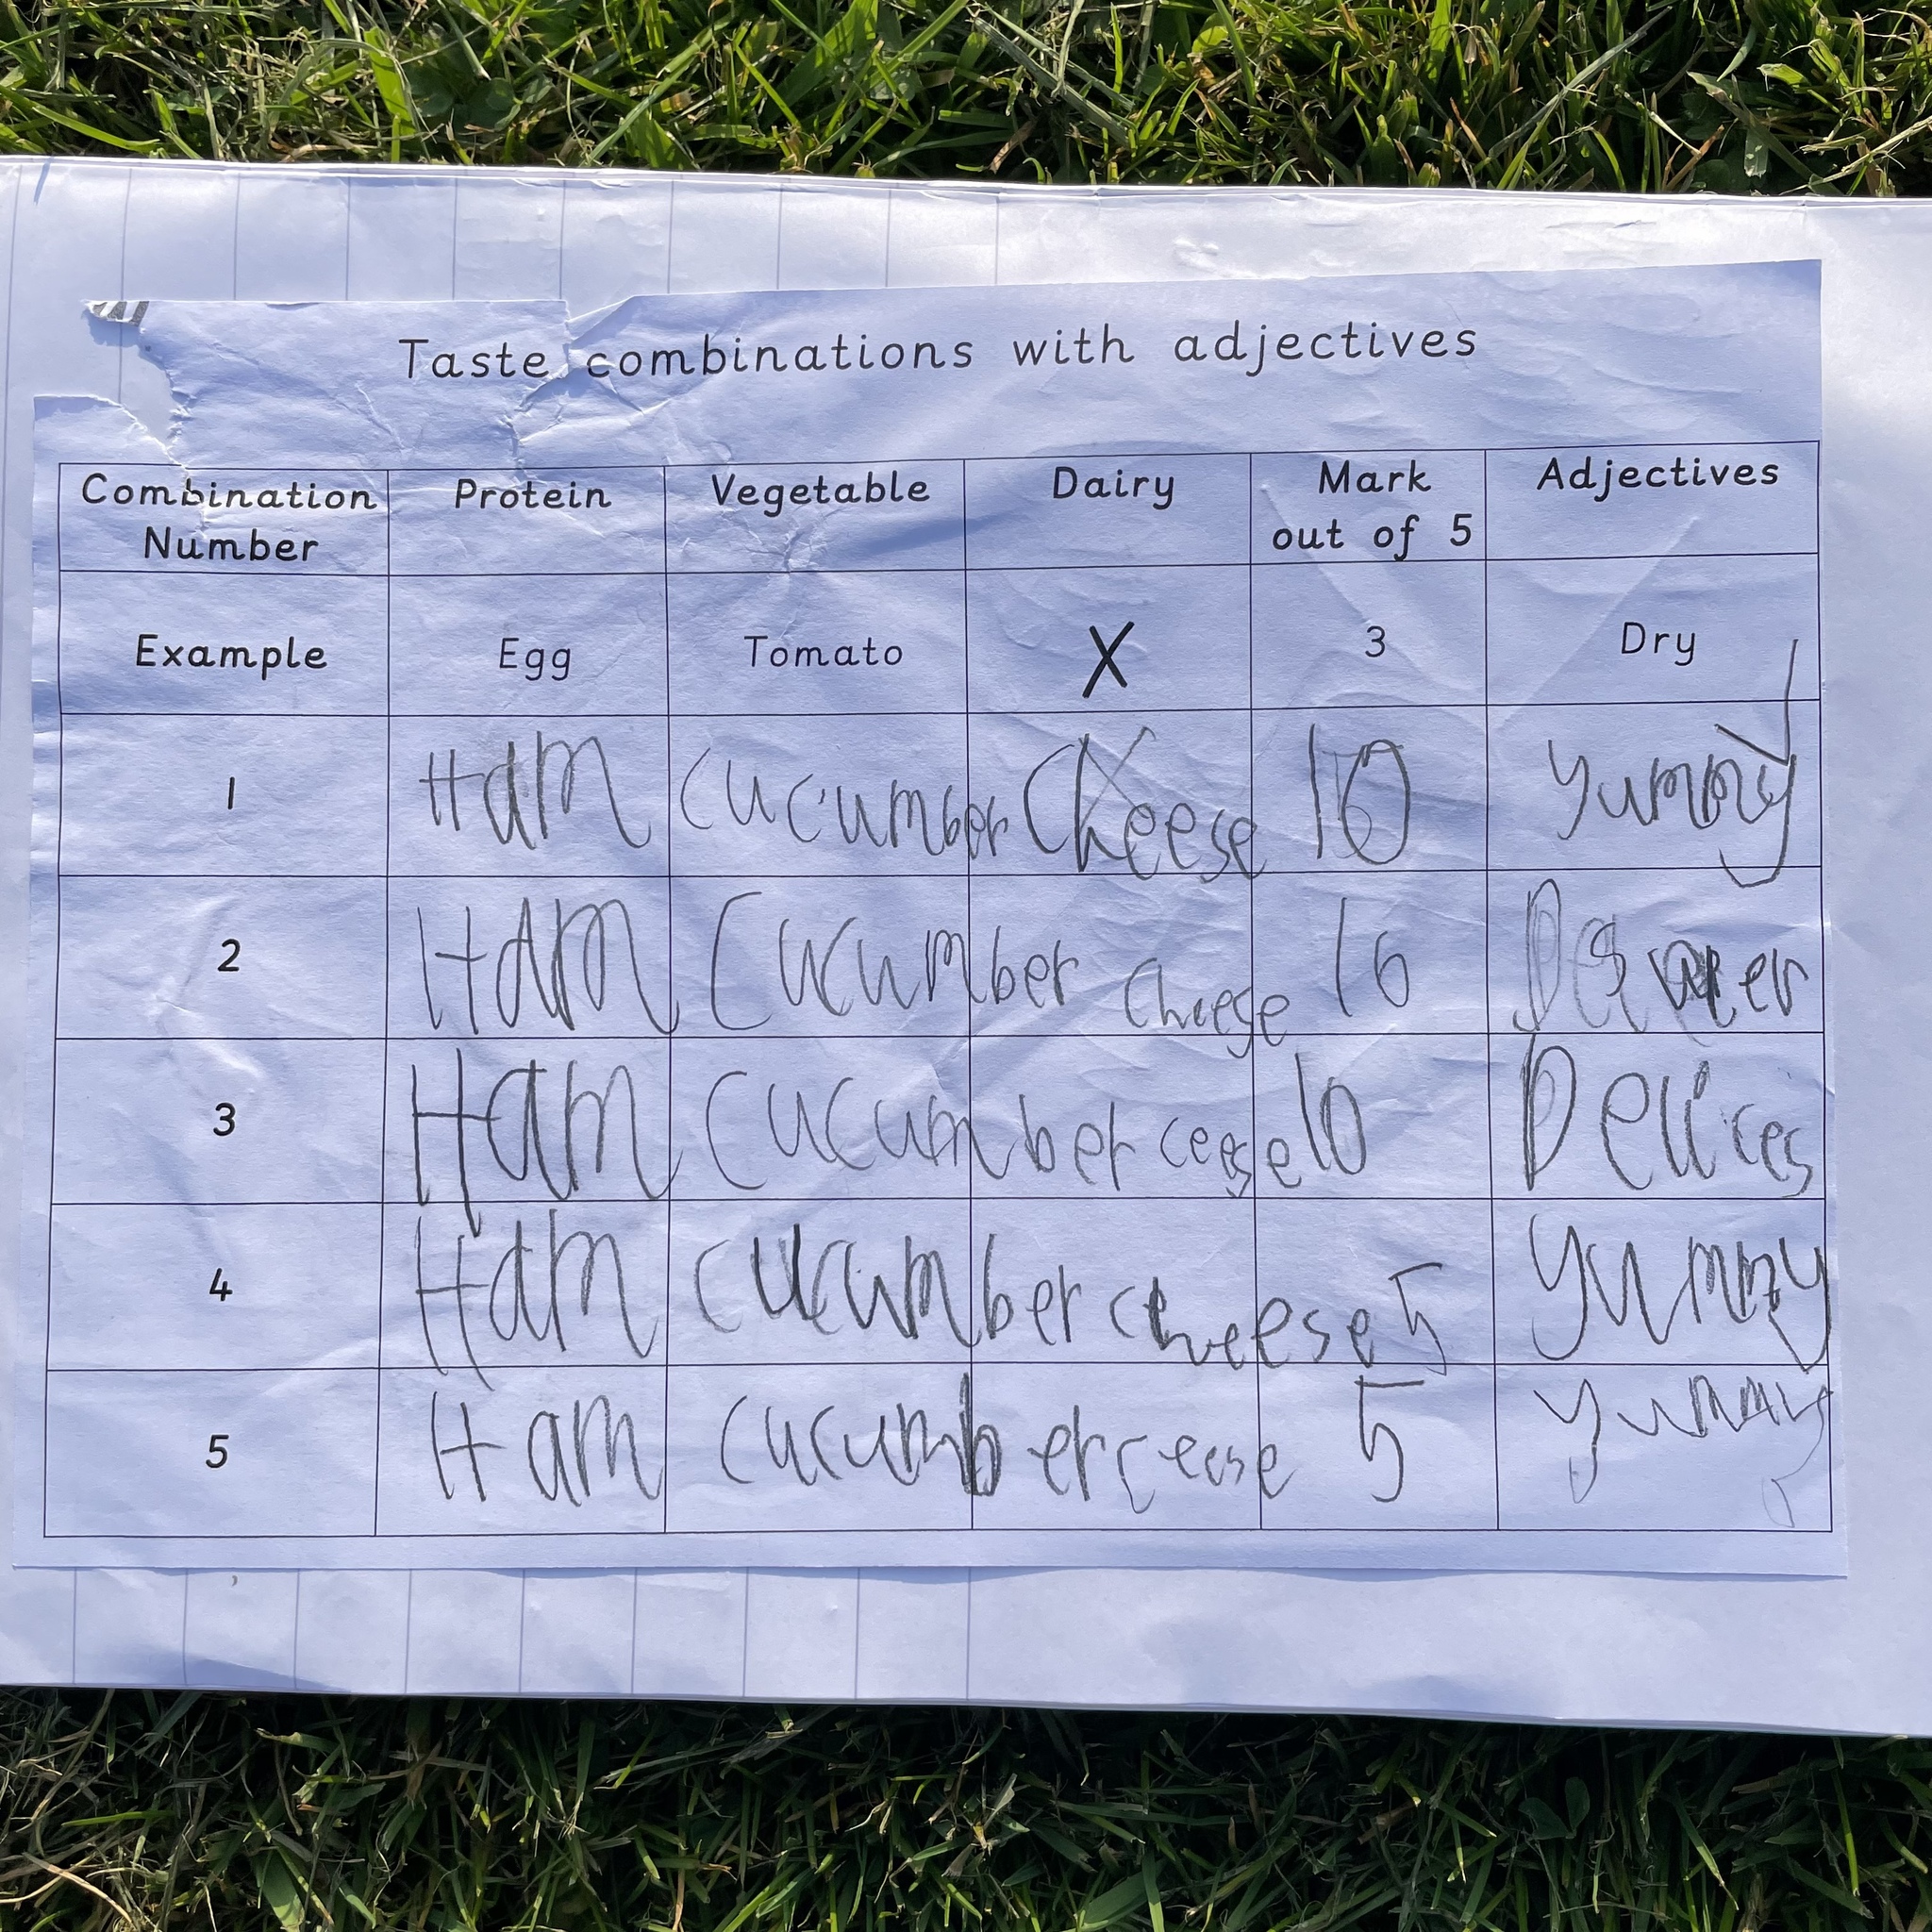 Taste combinations with adjectives
Combination Number Protein Vegetable Dairy Mark out of 5 Adjectives
Example Egg Tomato X 3 Dry
1 Ham cucumber Cheese 10 yummy
2 Ham Cucumber cheese 10
3 Ham Cucumber ceese 10 Delices
4 Ham cucumber cheese 5 yummy
5 Ham cucumber ceese 5 yummy